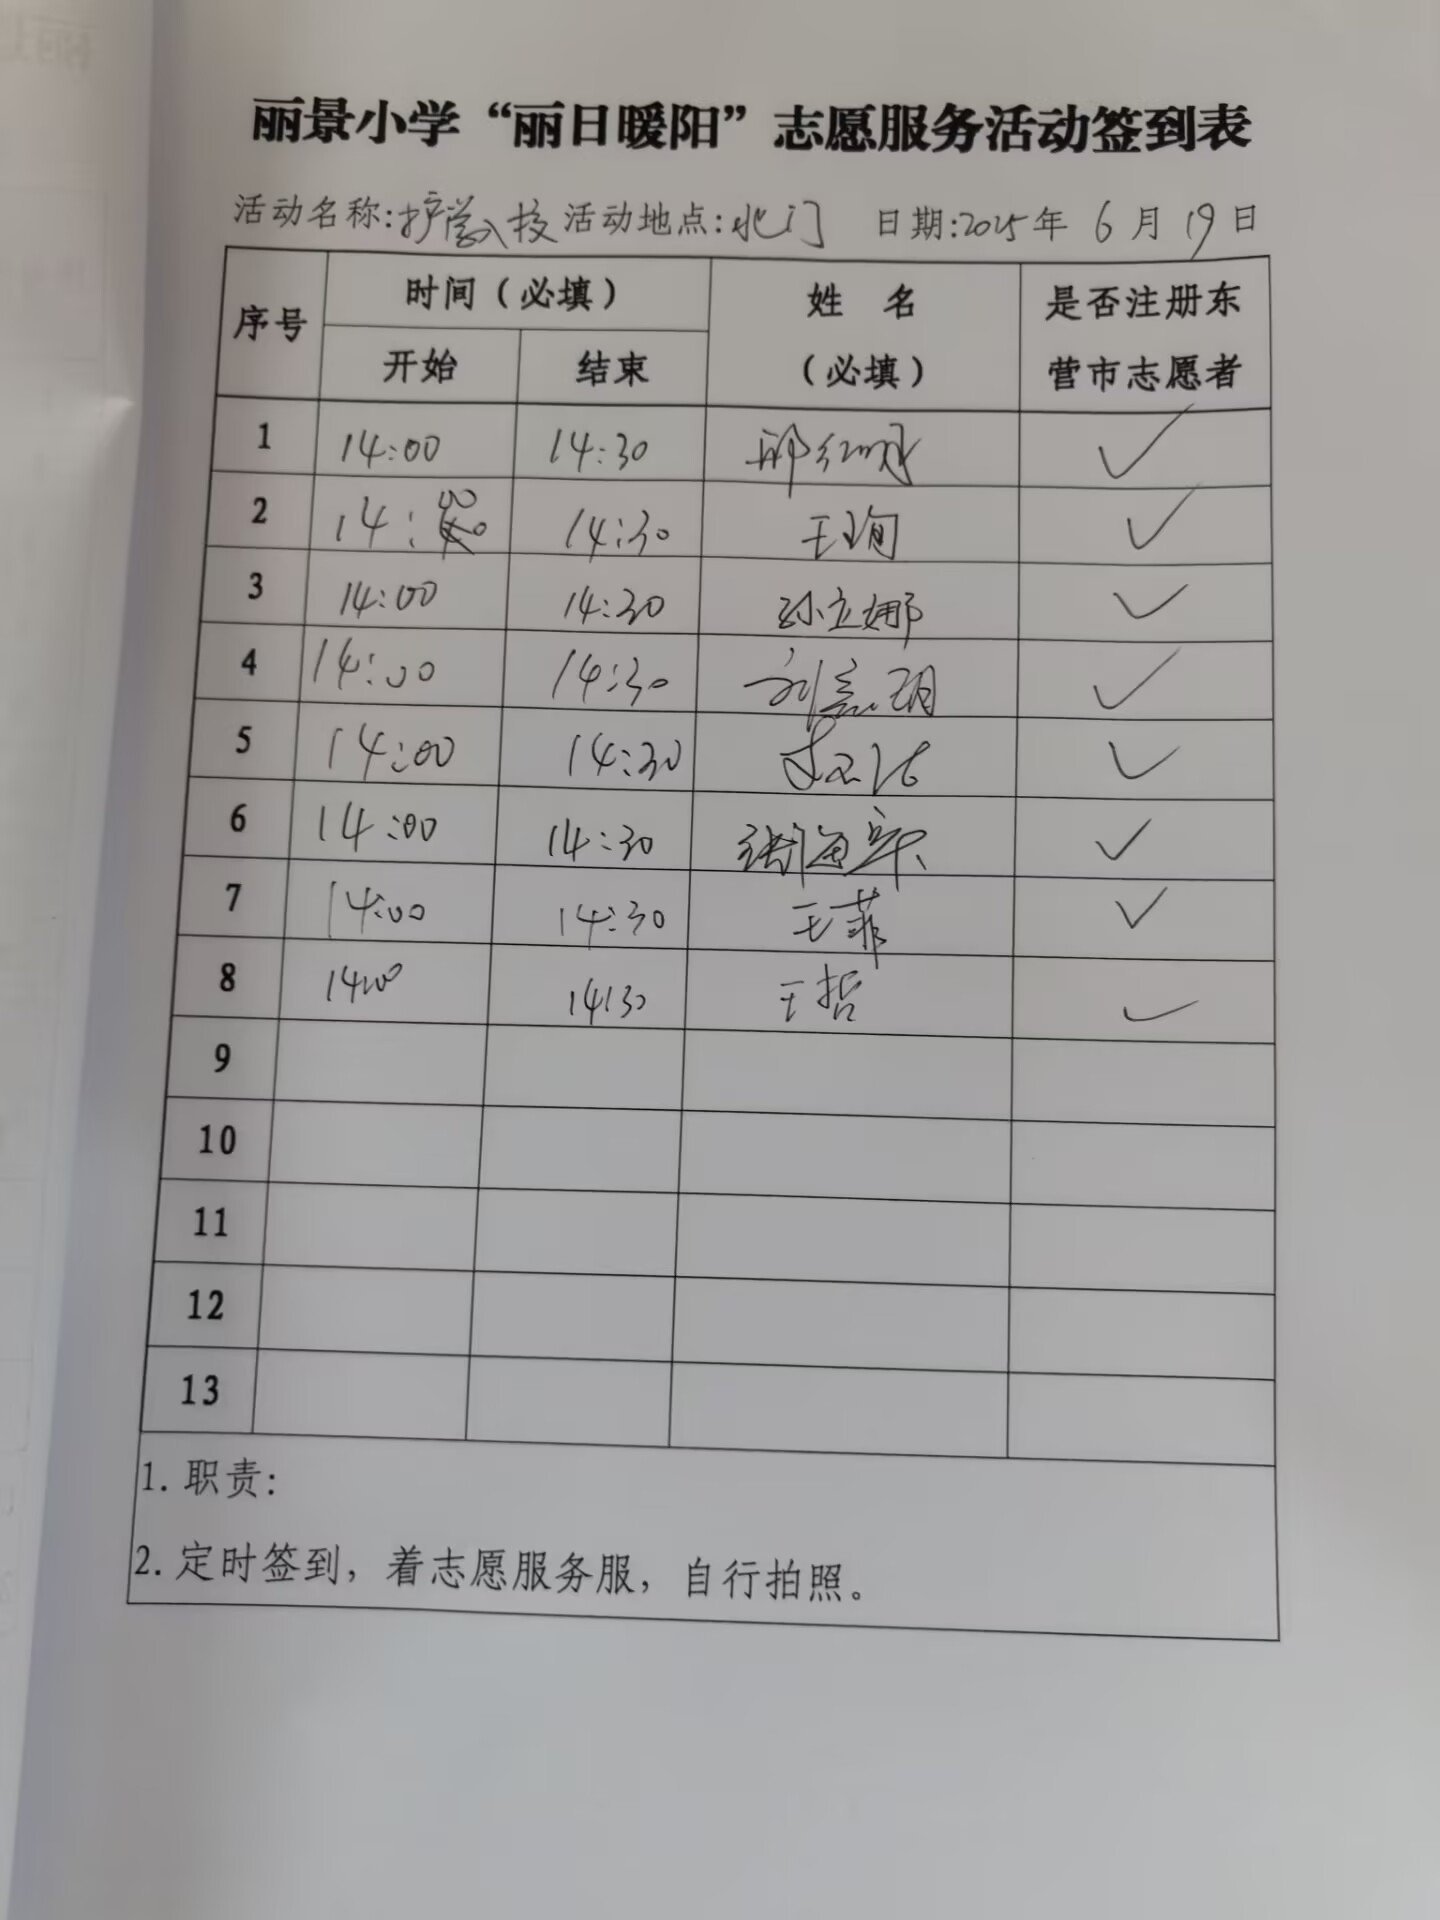 丽景小学“丽日暖阳”志愿服务活动签到表
活动名称:护学入校 活动地点:北门 日期:2025年 6 月 19 日
序号 时间（必填） 姓 名（必填） 是否注册东营市志愿者
开始 结束
1 14:00 14:30 邢红 ✓
2 14:00 14:30 王珣 ✓
3 14:00 14:30 孙立娜 ✓
4 14:00 14:30 刘 玥 ✓
5 14:00 14:30 ✓
6 14:00 14:30 海 ✓
7 14:00 14:30 王菲 ✓
8 14:00 14:30 王哲 ✓
9
10
11
12
13
1. 职责:
2. 定时签到，着志愿服务服，自行拍照。